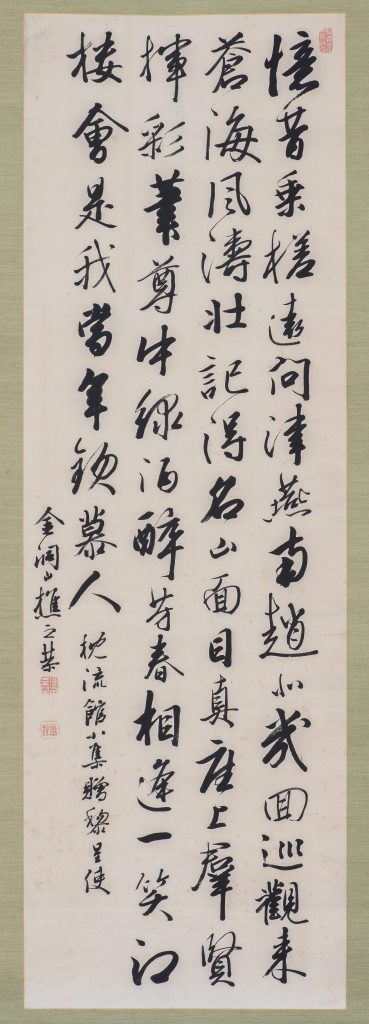 憶昔乗槎遠問津燕南趙北幾回巡観来
蒼海風濤壮記得名山面目真座上群賢
揮彩筆尊中緑酒酔芳春相逢一笑江
楼會是我當年欽慕人
枕流館小集贈黎星使
金洞山樵之葉